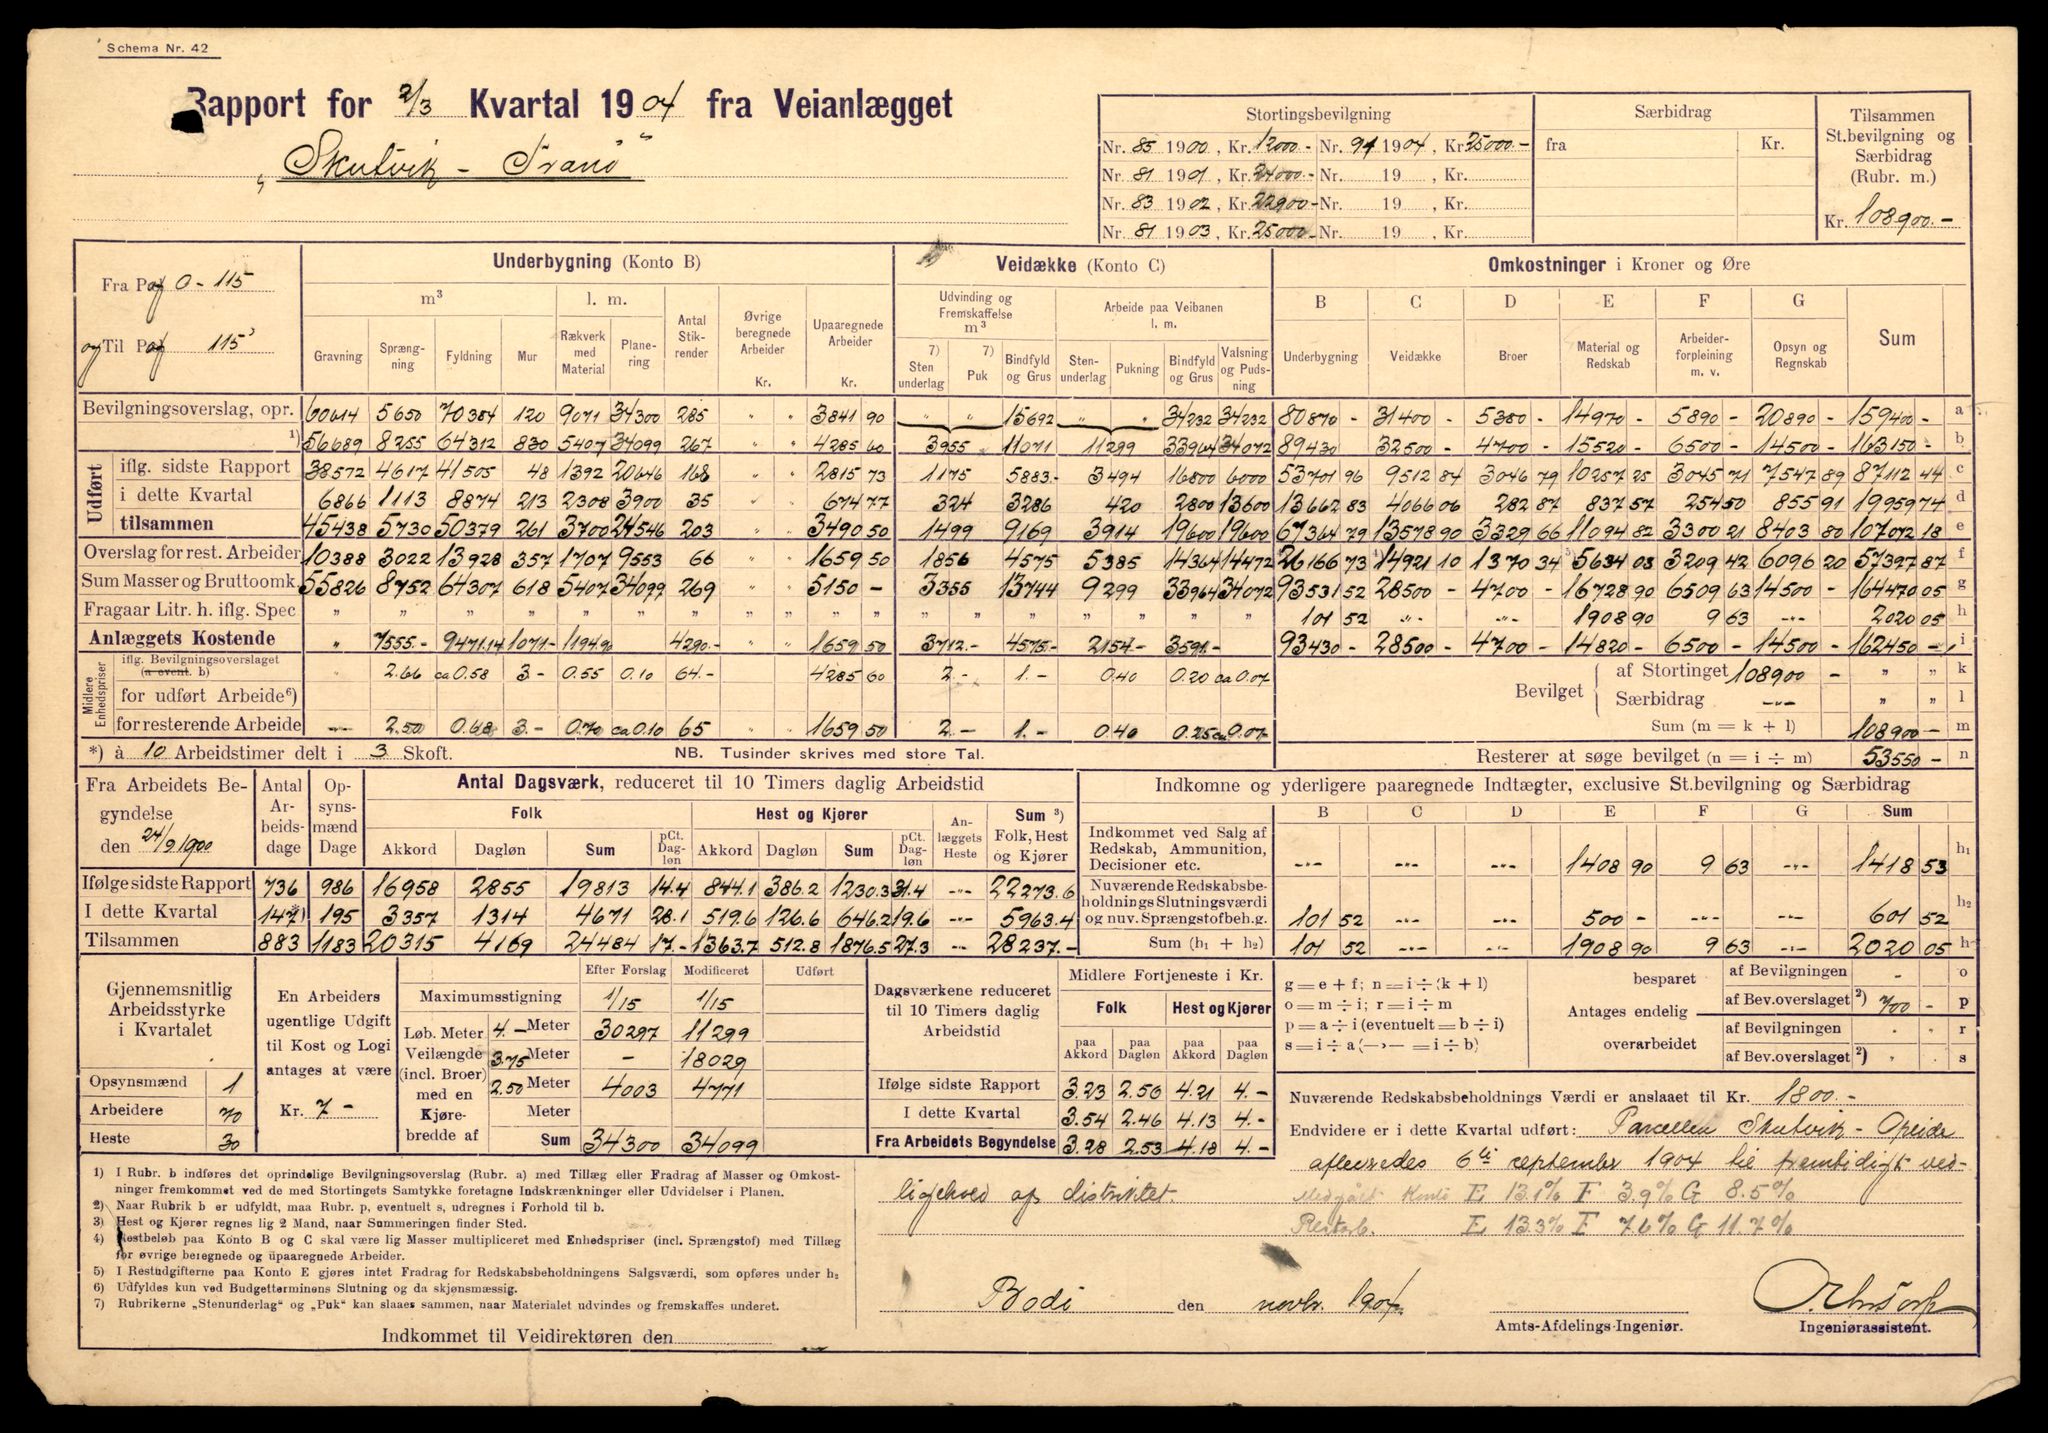 Schema Nr. 42
Rapport for 2/3 Kvartal 1904 fra Veianlægget
„Skutvik - Tranö"
Stortingsbevilgning
Særbidrag
Tilsammen St.bevilgning og Særbidrag (Rubr. m.)
Nr. 85 1900, Kr. 12000.- Nr. 91 1904, Kr. 25000.- fra Kr.
Nr. 81 1901, Kr. 24000.- Nr. 19 , Kr.
Nr. 83 1902, Kr. 22900.- Nr. 19 , Kr.
Nr. 81 1903, Kr. 25000.- Nr. 19 , Kr.
Kr. 108900.-
Fra Pæl 0 - 115
og Til Pæl 115
Underbygning (Konto B) Veidække (Konto C) Omkostninger i Kroner og Øre
m³ l. m. Antal Stikrender Øvrige beregnede Arbeider Kr. Upaaregnede Arbeider Kr.
Udvinding og Fremskaffelse m³ Arbeide paa Veibanen l. m.
B C D E F G Sum
Gravning Sprængning Fyldning Mur Rækverk med Material Planering
7) Sten underlag 7) Puk Bindfyld og Grus Stenunderlag Pukning Bindfyld og Grus Valsning og Pudsning
Underbygning Veidække Broer Material og Redskab Arbeiderforpleining m. v. Opsyn og Regnskab
Bevilgningsoverslag, opr. 60614 5650 70384 120 9071 34300 285 " " 3841 90 " " 15692 " " 34232 34232 80870 - 31400 - 5380 - 14970 - 5890 - 20890 - 159400 - a
1) 56689 8255 64312 830 5407 34099 267 " " 4285 60 3955 11071 11299 33964 34072 89430 32500 - 4700 - 15520 - 6500 - 14500 - 163150 - b
Udført
iflg. sidste Rapport 38572 4617 41505 48 1392 20646 168 " 2815 73 1175 5883.- 3494 16800 6000 53701 96 9512 84 3046 79 10257 25 3045 71 7547 89 87112 44 c
i dette Kvartal 6866 1113 8874 213 2308 3900 35 " 674 77 324 3286 420 2800 13600 13662 83 4066 06 282 87 837 57 254 50 855 91 19959 74 d
tilsammen 45438 5730 50379 261 3700 24546 203 " 3490 50 1499 9169 3914 19600 19600 67364 79 13578 90 3329 66 11094 82 3300 21 8403 80 107072 18 e
Overslag for rest. Arbeider 10388 3022 13928 357 1707 9553 66 " " 1659 50 1856 4575 5385 14364 14472 26166 73 14921 10 1370 34 5634 08 3209 42 6096 20 57397 87 f
Sum Masser og Bruttoomk. 55826 8752 64307 618 5407 34099 269 " " 5150 - 3355 13744 9299 33964 34072 93531 52 28500 - 4700 - 16728 90 6509 63 14500 - 164470 05 g
Fragaar Litr. h. iflg. Spec " " " " " " " " " " " " " " " " " 101 52 -"- -"- 1908 90 9 63 -"- 2020 05 h
Anlæggets Kostende " 7555.- 9471.14 1071.- 1194.90 4290.- " " 1659 50 3712.- 4575.- 2154.- 3591.- 93430 - 28500 - 4700 - 14820 - 6500 - 14500 - 162450 - i
Midlere Enhedspriser
iflg. Bevilgningsoverslaget (a event. b) " 2.66 ca 0.58 3 - 0.55 0.10 64.- 4285 60 2.- 1.- 0.40 0.20 ca 0.07
for udført Arbeide 6)
for resterende Arbeide -"- 2.50 0.68 3.- 0.70 ca 0.10 65 " " 1659 50 2.- 1.- 0.40 0.25 ca 0.07
Bevilget af Stortinget 108900 - " " k
Særbidrag -"- " " l
Sum (m = k + l) 108900 - m
Resterer at søge bevilget (n = i ÷ m) 53550 - n
*) à 10 Arbeidstimer delt i 3 Skoft. NB. Tusinder skrives med store Tal.
Fra Arbeidets Begyndelse den 24/9 1900
Antal Arbeidsdage
Opsynsmænd Dage
Antal Dagsværk, reduceret til 10 Timers daglig Arbeidstid
Folk Hest og Kjører Anlæggets Heste Sum 3) Folk, Hest og Kjører
Akkord Dagløn Sum pCt. Dagløn Akkord Dagløn Sum pCt. Dagløn
Ifølge sidste Rapport 736 986 16958 2855 19813 14.4 844.1 386.2 1230.3 31.4 -"- 22273.6
I dette Kvartal 147*) 195 3357 1314 4671 28.1 519.6 126.6 646.2 19.6 -"- 5963.4
Tilsammen 883 1183 20315 4169 24484 17.- 1363.7 512.8 1876.5 27.3 -"- 28237.-
Indkomne og yderligere paaregnede Indtægter, exclusive St.bevilgning og Særbidrag
B C D E F G Sum
Indkommet ved Salg af Redskab, Ammunition, Decisioner etc. -"- -"- -"- 1408 90 9 63 -"- 1418 53 h₁
Nuværende Redskabsbeholdnings Slutningsværdi og nuv. Sprængstofbeh.g. 101 52 500 - 601 52 h₂
Sum (h₁ + h₂) 101 52 -"- -"- 1908 90 9 63 -"- 2020 05 h
Gjennemsnitlig Arbeidsstyrke i Kvartalet
Opsynsmænd 1
Arbeidere 70
Heste 30
En Arbeiders ugentlige Udgift til Kost og Logi antages at være
Kr. 7 -
Efter Forslag Modificeret Udført
Maximumsstigning 1/15 1/15
Løb. Meter Veilængde (incl. Broer) med en Kjørebredde af
4.- Meter 30297 11299
3.75 Meter - 18029
2.50 Meter 4003 4771
Meter
Sum 34300 34099
Dagsværkene reduceret til 10 Timers daglig Arbeidstid
Midlere Fortjeneste i Kr.
Folk Hest og Kjører
paa Akkord paa Dagløn paa Akkord paa Dagløn
Ifølge sidste Rapport 3.23 2.56 4.21 4.-
I dette Kvartal 3.54 2.46 4.13 4.-
Fra Arbeidets Begyndelse 3.28 2.53 4.18 4.-
g = e + f; n = i ÷ (k + l)
o = m ÷ i; r = i ÷ m
p = a ÷ i (eventuelt = b ÷ i)
s = i ÷ a (—›— = i ÷ b)
Antages endelig
besparet af Bevilgningen - o
af Bev.overslaget 2) 700 - p
overarbeidet af Bevilgningen " " r
af Bev.overslaget 2) " " s
Nuværende Redskabsbeholdnings Værdi er anslaaet til Kr. 1800.-
Endvidere er i dette Kvartal udført: Parcellen Skutvik - Opeide
afleveredes 6te september 1904 til fremtidigt ved-
ligehold af distriktet. Medgået Konto E 13.1% F 3.9% G 8.5%
Restarb. E 13.3% F 7.6% G 11.7%
1) I Rubr. b indføres det oprindelige Bevilgningsoverslag (Rubr. a) med Tillæg eller Fradrag af Masser og Omkostninger fremkommet ved de med Stortingets Samtykke foretagne Indskrænkninger eller Udvidelser i Planen.
2) Naar Rubrik b er udfyldt, maa Rubr. p, eventuelt s, udregnes i Forhold til b.
3) Hest og Kjører regnes lig 2 Mand, naar Summeringen finder Sted.
4) Restbeløb paa Konto B og C skal være lig Masser multipliceret med Enhedspriser (incl. Sprængstof) med Tillæg for øvrige beregnede og upaaregnede Arbeider.
5) I Restudgifterne paa Konto E gjøres intet Fradrag for Redskabsbeholdningens Salgsværdi, som opføres under h₂
6) Udfyldes kun ved Budgetterminens Slutning og da skjønsmæssig.
7) Rubrikerne „Stenunderlag" og „Puk" kan slaaes sammen, naar Materialet udvindes og fremskaffes underet.
Bodö den novbr. 1904
Amts-Afdelings-Ingeniør.
Ingeniørassistent.
Indkommet til Veidirektøren den